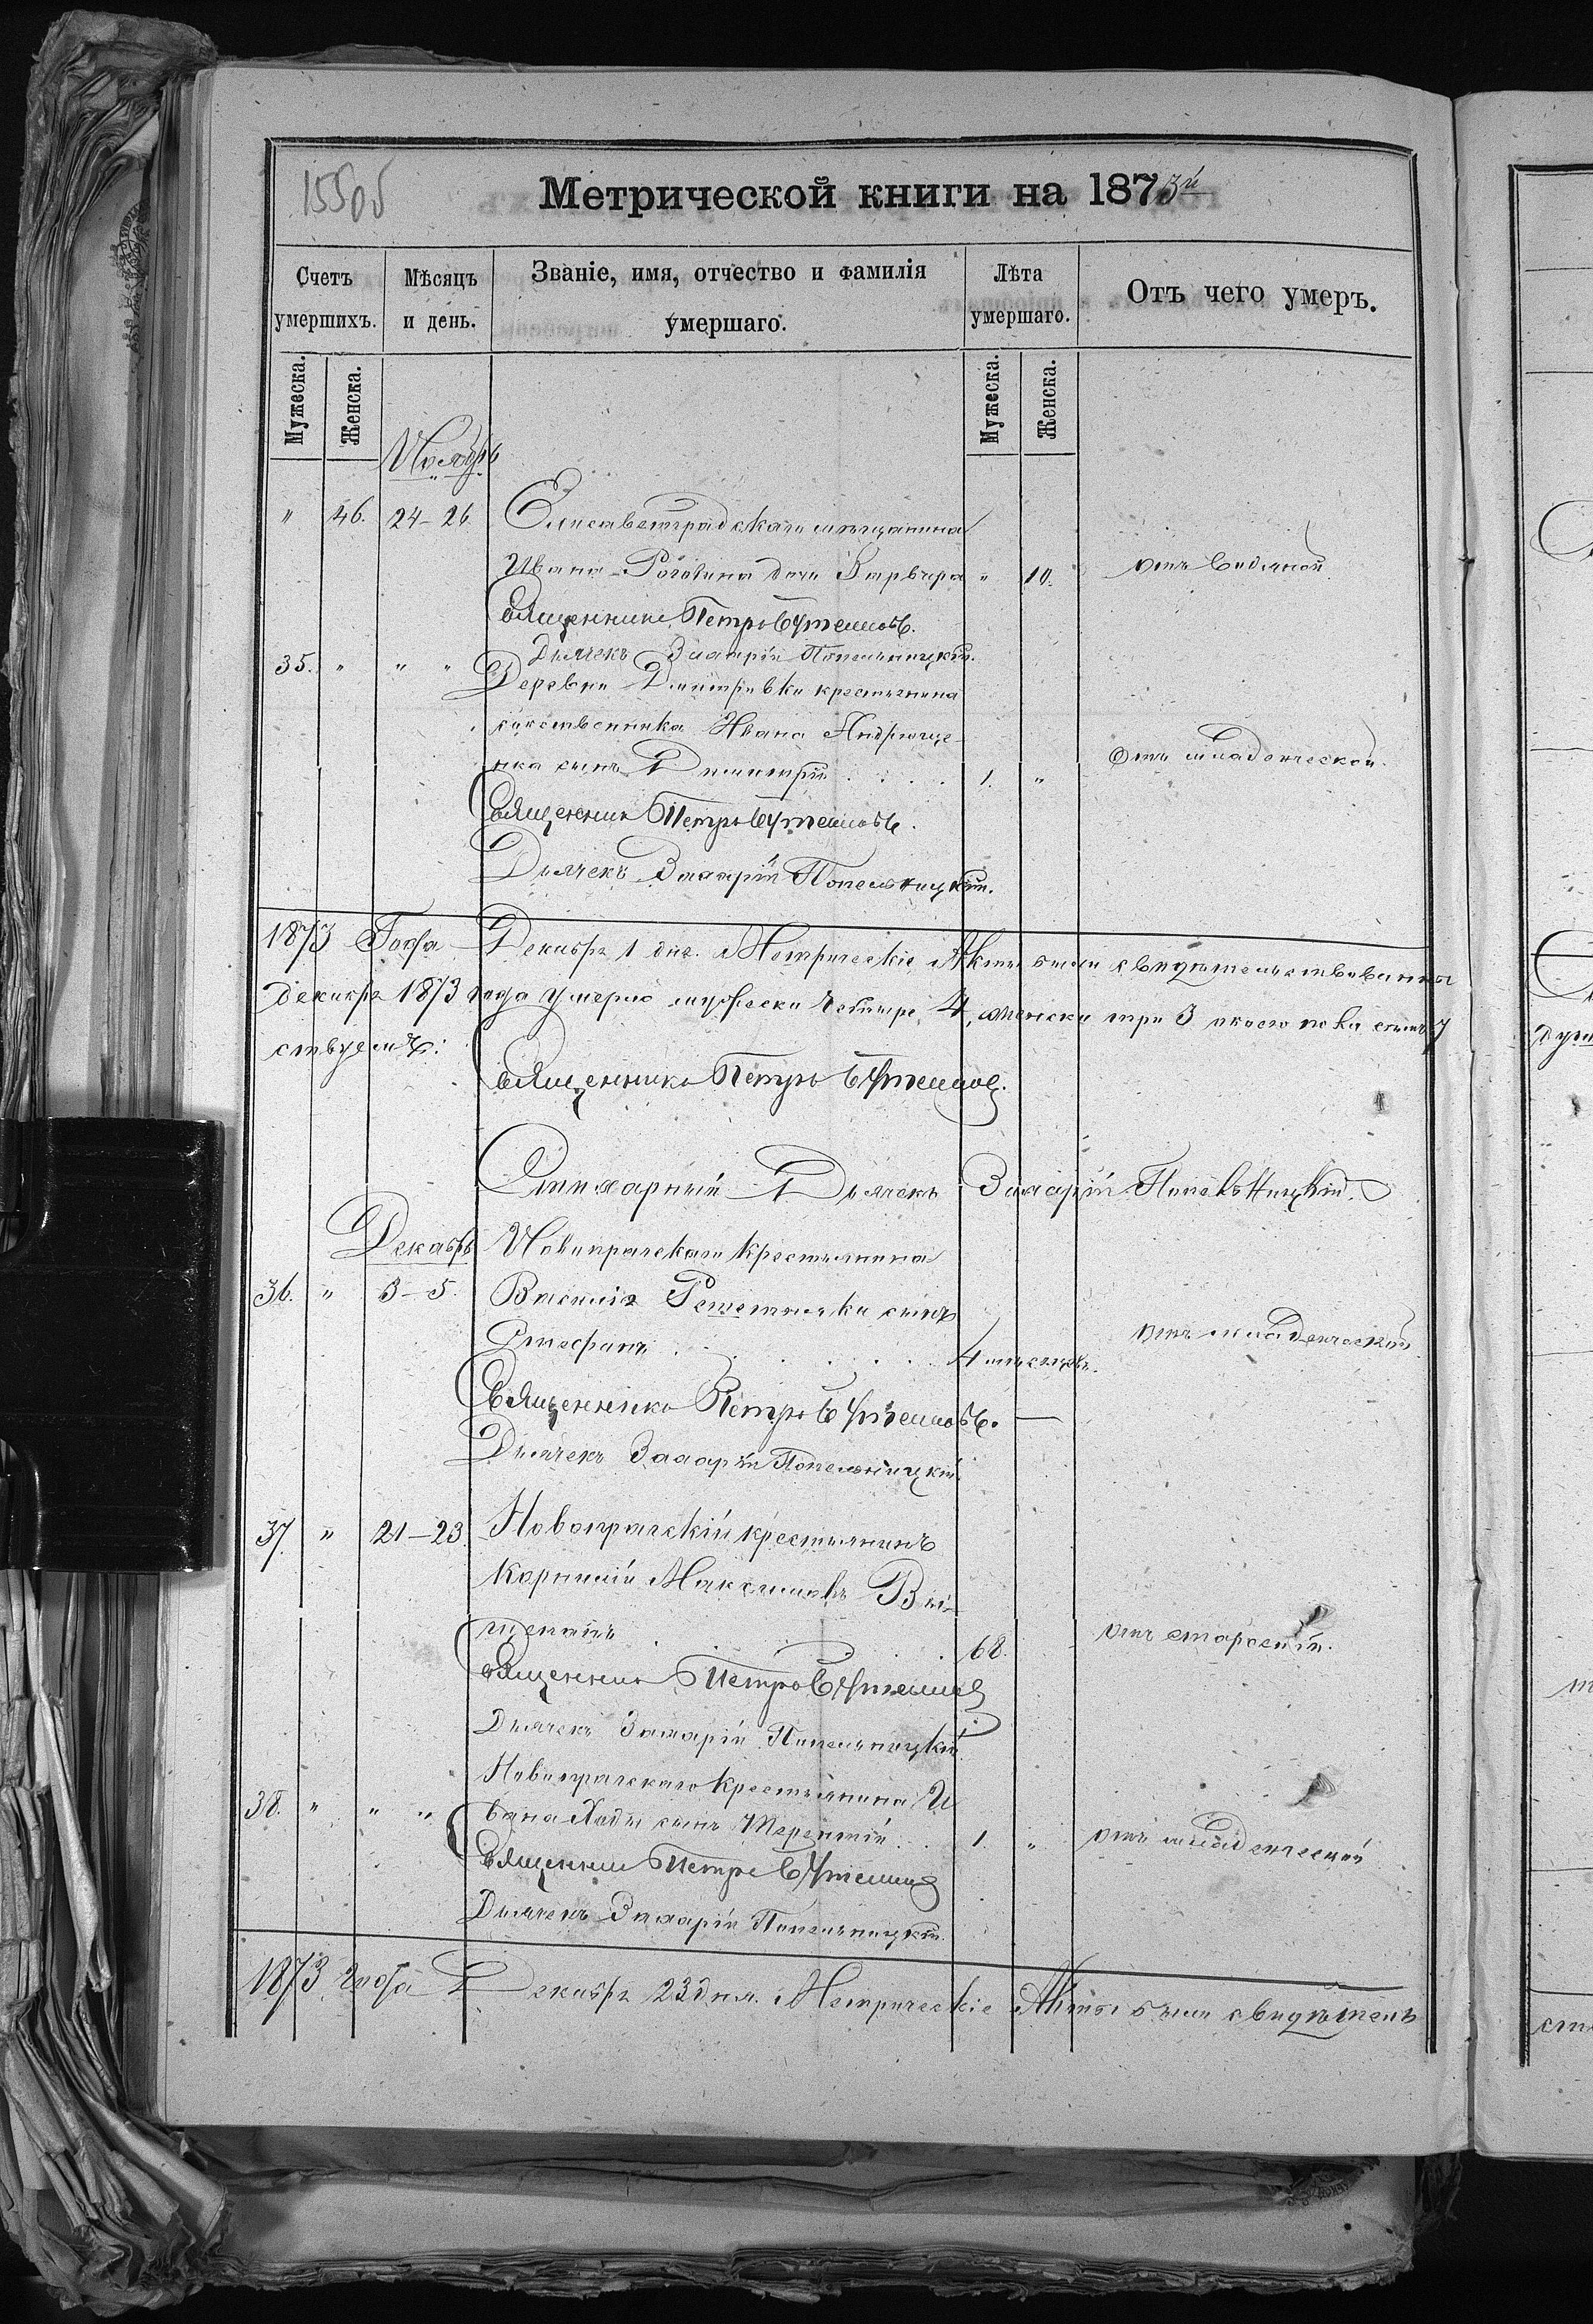 155об
Метрической книги на 1873й
Счетъ умершихъ.
Мѣсяцъ и день.
Званіе, имя, отчество и фамилія умершаго.
Лѣта умершаго.
Отъ чего умеръ.
Мужеска.
Женска.
Мужеска.
Женска.
Ноябрь
" 46. 24-26. Елисаветградскаго мѣщанина
Ивана дочь Варвара " 10. отъ водяной.
Священникъ Петръ
Дьячекъ Захарій Попельницкій.
35. " " " Деревни Дмитровки крестьянина
собственника Ивана Андрюще
нка сынъ Димитрій . . . . 1. " Отъ младенческой.
Священникъ Петръ
Дьячекъ Захарій Попельницкій.
1873 Года Декабря 1 дня. Метрическіе Акты были свидѣтельствованы
декабря 1873 года умерло мужеска четыре 4, женска три 3 обоего пола семь 7
ствуемъ:
Священникъ Петръ
Стихарный Дьячекъ Захарій Попельницкій.
Декабрь Новопражскаго крестьянина
36. " 3-5. Василія сынъ
Стефанъ . . . . . . 4 мѣсяцевъ. отъ младенческой
Священникъ Петръ
Дьячекъ Захарій Попельницкій
37. " 21-23. Новопражскій крестьянинъ
Корнилій Максимовъ
68. отъ старости.
Священникъ Петръ
Дьячекъ Захарій Попельницкій
Новопражскаго крестьянина И
38. " " " вана сынъ Терентій . . 1. " отъ младенческой
Священникъ Петръ
Дьячекъ Захарій Попельницкій.
1873 года Декабря 23 дня. Метрическіе Акты были свидѣтель